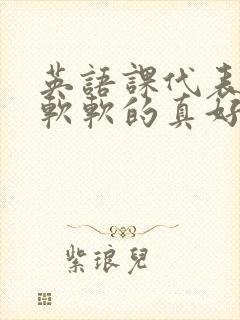 英語課代表
軟軟的真好
紫琅兒